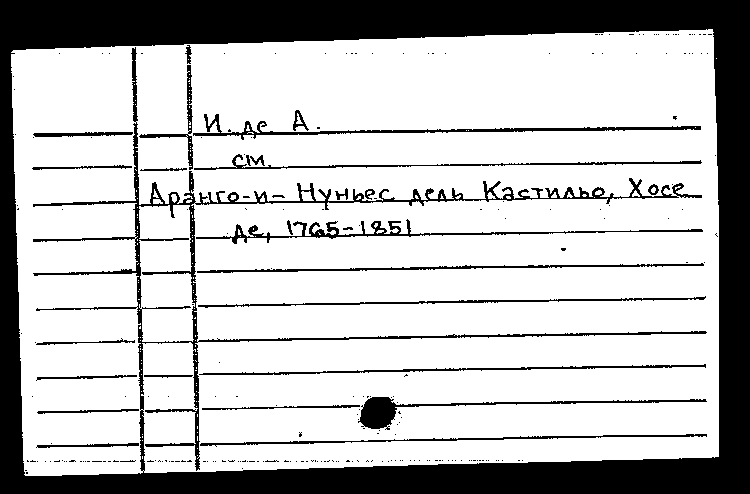 И. де А.
см.
Аранго-и-Нуньес дель Кастильо, Хосе
де, 1765-1851